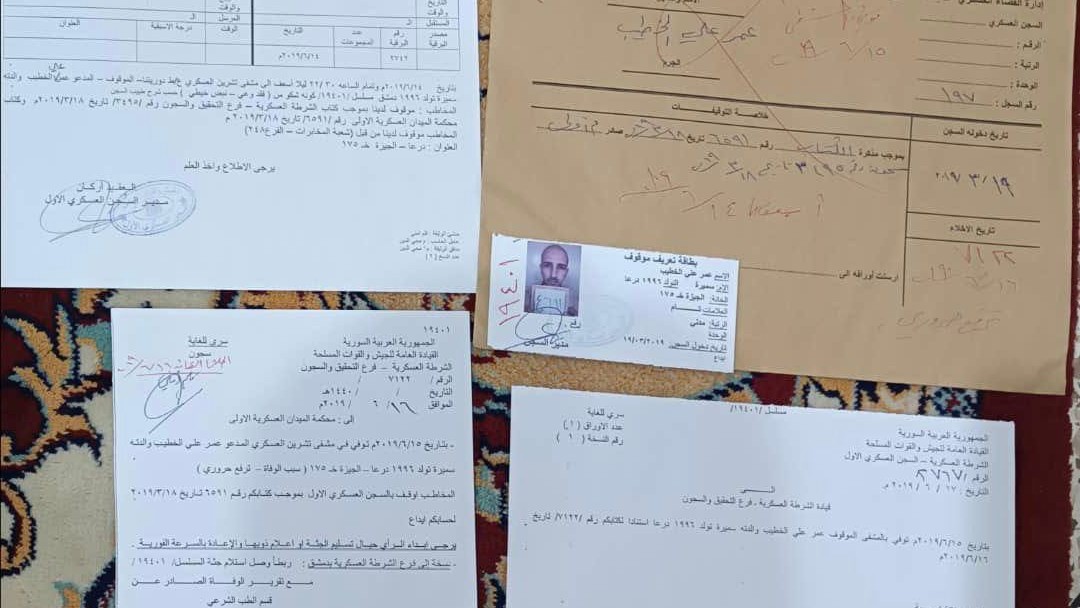 التاريخ
والوقت
المستقبل
الـ
المرسل
والوقت
الـ
مصدر البرقية
رقم البرقية
عدد المجموعات
التاريخ
الوقت
درجة الاسبقية
العنوان
٢٧٤٦
٢٠١٩/٦/١٤م
بتاريخ ٢٠١٩/٦/١٤م وتمام الساعه ٢٢/٣٠ ليلا أسعف الى مشفى تشرين العسكري دوريتنا– الموقوف – المدعو عمر علي الخطيب والدته
سميرة تولد ١٩٩٦ دمشق مسلسل /١٩٤٠١/ كونه شكو من ( فقد وعي – نبض خيطي ) حسب شرح طبيب السجن
المخاطب : موقوف لدينا بموجب كتاب الشرطة العسكرية – فرع التحقيق والسجون رقم /٣٤٩٥/ تاريخ ٢٠١٩/٣/١٨م وكتاب
محكمة الميدان العسكرية الاولى رقم /٦٥٩١/ تاريخ ٢٠١٩/٣/١٨ م
المخاطب موقوف لدينا من قبل (شعبة المخابرات – الفرع٢٤٨)
العنوان : درعا – الجيزة خـ ١٧٥
يرجى الاطلاع واخذ العلم
العقيد أركان
مدير السجن العسكري الاول
إدارة القضاء العسكري
السجن العسكري
الرقم :
الرتبة :
الوحدة :
رقم السجل : ١٩٧
عمر علي الخطيب
الجرم
٦/١٥
خلاصة التوقيفات
تاريخ دخوله السجن
٢٠١٩/٣/١٩
بموجب مذكرة الكتاب رقم ٦٥٩١ تاريخ ٣/١٨ صدر
٣٤٩٥ تاريخ ٣/١٨
٦/١٤
تاريخ الاخلاء
٧١٢٢
٦/١٦
ارسلت أوراقه الى
بطاقة تعريف موقوف
الاسم عمر علي الخطيب
الام: سميرة التولد ١٩٩٦ درعا
الخانة: الجيزة خـ ١٧٥
العلامات: تـــــام
الرتبة: مدني
الوحدة
تاريخ دخول السجن: ١٩/٠٣/٢٠١٩
إيداع
رقم
مدير السجن
١٩٤٠١
١٩٤٠١
سري للغاية
سجون
الجمهورية العربية السورية
القيادة العامة للجيش والقوات المسلحة
الشرطة العسكرية – فرع التحقيق والسجون
الرقم / ٧١٢٢ /
التاريخ / / ١٤٤٠هـ
الموافق ١٦ / ٦ / ٢٠١٩م
إلى : محكمة الميدان العسكرية الاولى
- بتاريخ ٢٠١٩/٦/١٥م توفي في مشفى تشرين العسكري المدعو عمر علي الخطيب والدته
سميرة تولد ١٩٩٦ درعا – الجيزة خـ ١٧٥ ( سبب الوفاة – ترفع حروري )
المخاطب اوقف بالسجن العسكري الاول بموجب كتابكم رقم ٦٥٩١ تاريخ ٢٠١٩/٣/١٨
لحسابكم ايداع
يرجى إبداء الرأي حيال تسليم الجثة او اعلام ذويها والإعادة بالسرعة الفورية .
- نسخة الى فرع الشرطة العسكرية بدمشق : ربطاً وصل استلام جثة المسلسل/ ١٩٤٠١ /
مــع تقريــر الوفــاة الصــادر عــن
قسم الطب الشرعي
مسلسل /١٩٤٠١/
سري للغاية
عدد الاوراق (١)
رقم النسخة ( ١ )
الجمهورية العربية السورية
القيادة العامة للجيش والقوات المسلحة
الشرطة العسكرية – السجن العسكري الاول
الرقم /٢٧٦٧/
التاريخ : ١٧ / ٦ / ٢٠١٩ م
الــــى
قيادة الشرطة العسكرية – فرع التحقيق والسجون
بتاريخ ٢٠١٩/٦/١٥م توفي بالمشفى الموقوف عمر علي الخطيب والدته سميرة تولد ١٩٩٦ درعا استنادا لكتابكم رقم /٧١٢٢/ تاريخ
٢٠١٩/٦/١٦م